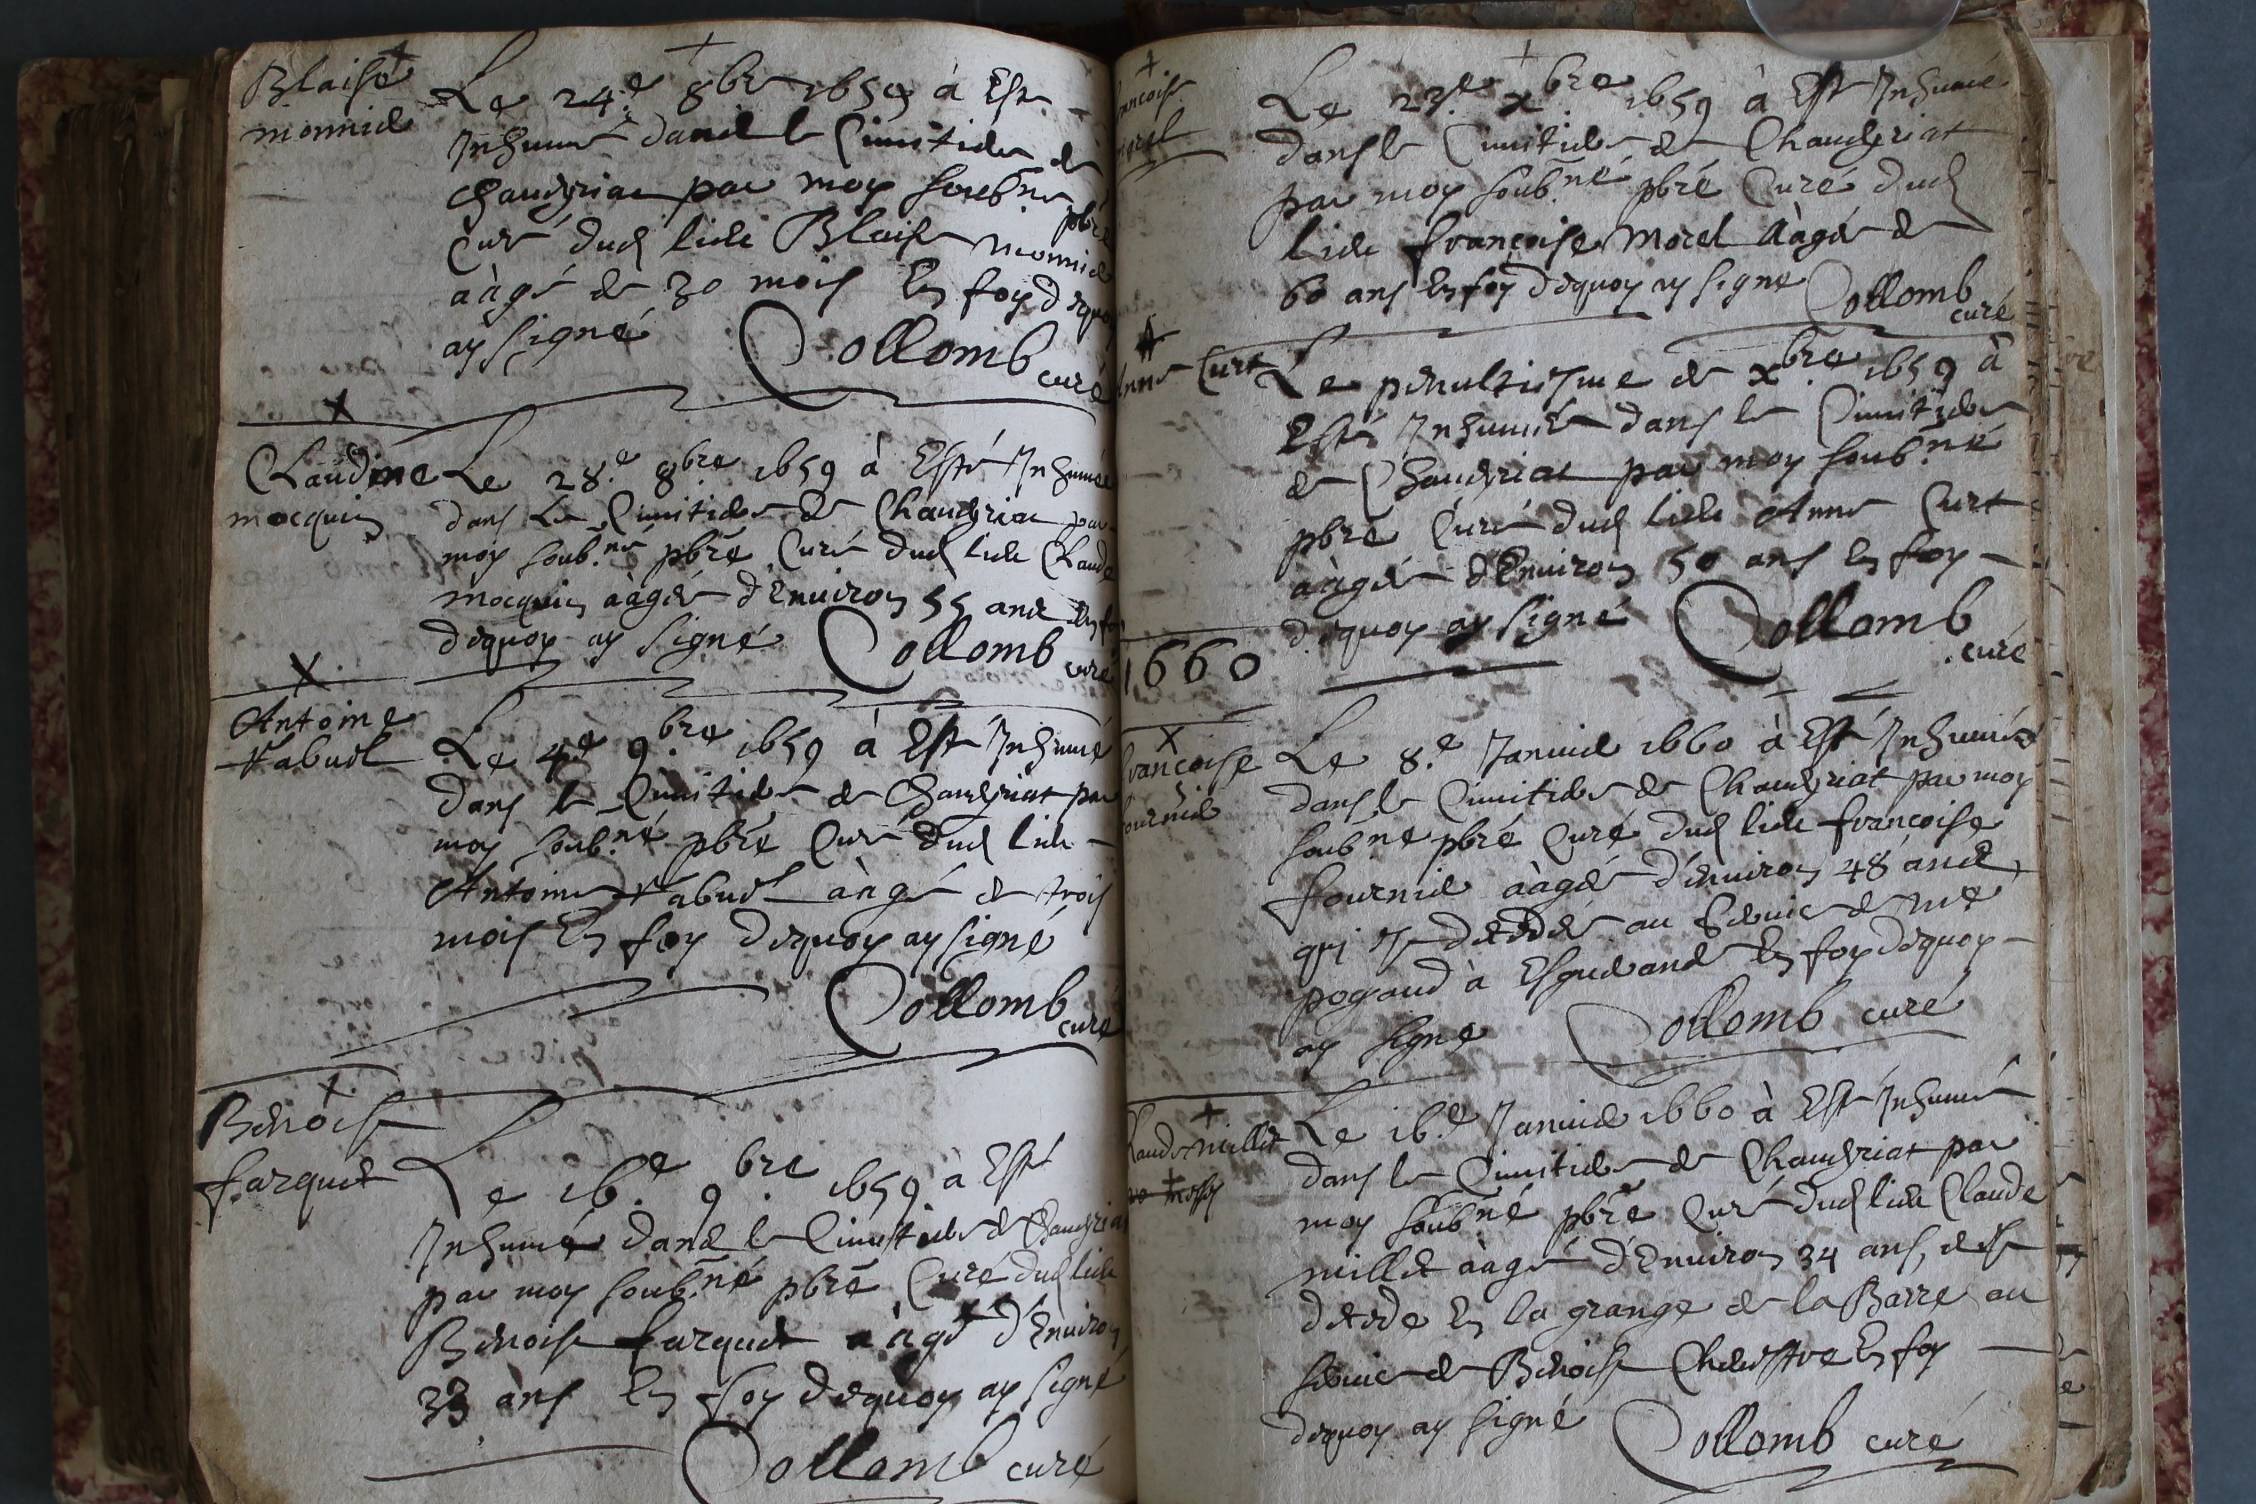 Blaise
monnier
Le 24.e 8bre 1659 à Esté
Inhumé dans le Cimitiere de
Chaveyriat par moy soub.né pbre
Curé dud lieu Blaise monnier
aàgé de 30 mois En foy dequoy
ay signé Collomb curé
Claudine
mocquin
Le 28.e 8bre 1659 à Esté Inhumée
dans Le Cimitiere de Chaveyriat par
moy soub.né pbre Curé dud lieu Claude
mocquin aàgée d'Environ 55 ans En foy
dequoy ay signé Collomb curé
Antoine
Le 4.e 9bre 1659 à Esté Inhumé
dans le Cimitiere de Chaveyriat par
moy soub.né pbre Curé dud lieu
Antoine aàgé de trois
mois En foy dequoy ay signé
Collomb curé
Benoist
farquet
Le 16.e 9bre 1659 à Esté
Inhumé dans le Cimitiere de Chaveyriat
par moy soub.né pbre Curé dud lieu
Benoist farquet aàgé d'Environ
33 ans En foy dequoy ay signé
Collomb curé
francoise
morel
Le 23.e xbre 1659 à Esté Inhumé
dans le Cimitiere de Chaveyriat
par moy soub.né pbre Curé dud
lieu françoise morel aàgée de
60 ans En foy dequoy ay signe Collomb
curé
Anne Curt
Le penultiesme de xbre 1659 à
Esté Inhumée dans le Cimitiere
de Chaveyriat par moy soub.né
pbre Curé dud lieu Anne Curt
aàgée d'Environ 50 ans En foy
dequoy ay signé Collomb
curé
1660
francoise
fournier
Le 8.e Janvier 1660 à Esté Inhumée
dans le Cimitiere de Chaveyriat par moy
soub.né pbre Curé dud lieu francoise
fournier aàgée d'environ 48 ans
qui est decedée au service de me
pogaud à En foy dequoy
ay signe Collomb curé
Claude millet
Le 16.e Janvier 1660 à Esté Inhumé
dans le Cimitiere de Chaveyriat par
moy soub.né pbre Curé dud lieu Claude
millet aàgé d'Environ 34 ans, et est
decede En la grange de la Barre au
service de Benoist En foy
dequoy ay signé Collomb curé